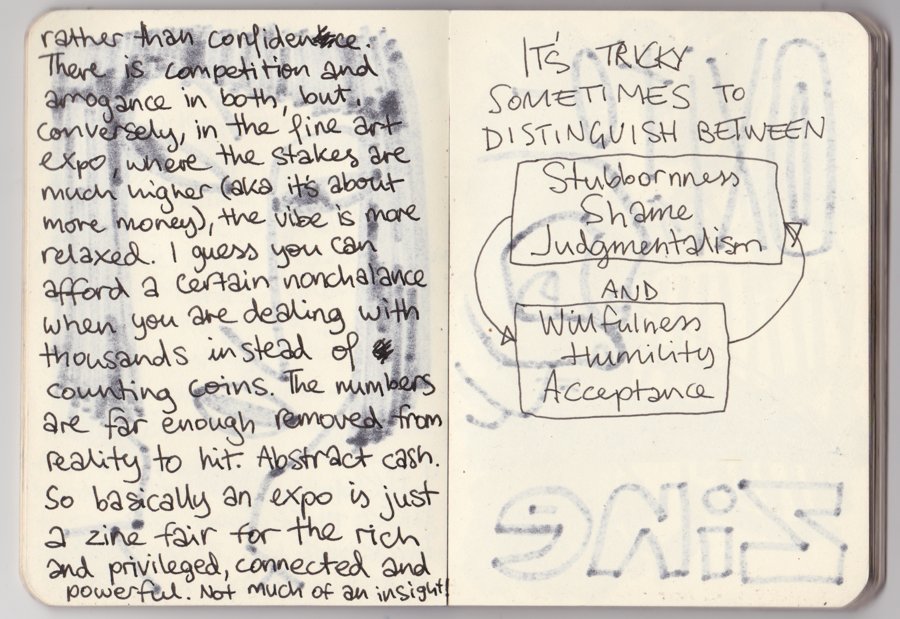 rather than confidence.
There is competition and
arrogance in both, but,
conversely, in the fine art
expo, where the stakes are
much higher (aka it's about
more money), the vibe is more
relaxed. I guess you can
afford a certain nonchalance
when you are dealing with
thousands instead of
counting coins. The numbers
are far enough removed from
reality to hit. Abstract cash.
So basically an expo is just
a zine fair for the rich
and privileged, connected and
powerful. Not much of an insight!
IT'S TRICKY
SOMETIMES TO
DISTINGUISH BETWEEN
Stubbornness
Shame
Judgmentalism
AND
Willfulness
Humility
Acceptance
zine